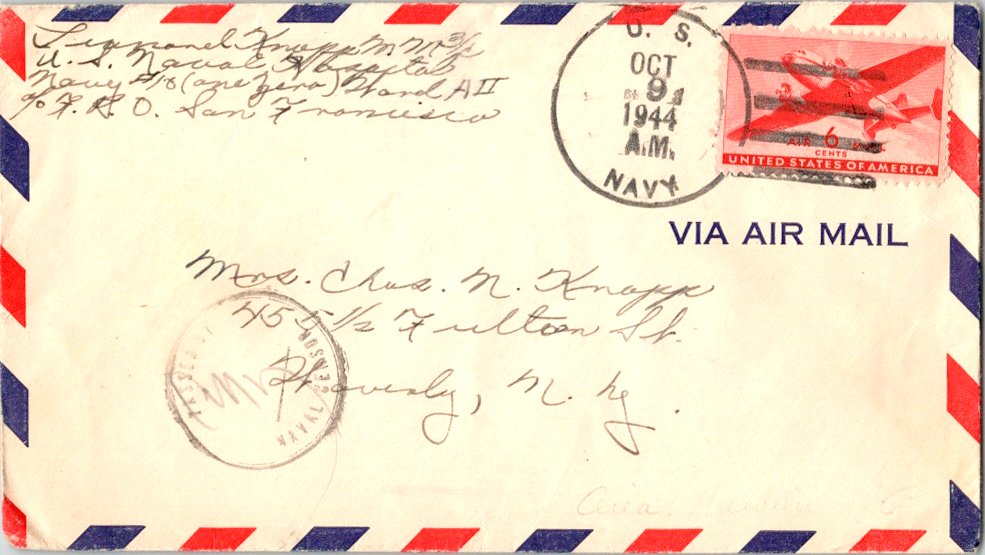 Knapp M M 3/c
U. S. Naval Hospital
Navy #10 (one zero) Ward A II
c/o F. P. O. San Francisco
U. S.
OCT
9
1944
A.M.
NAVY
AIR 6 MAIL
CENTS
UNITED STATES OF AMERICA
VIA AIR MAIL
Mrs. Chas. N. Knapp
455 1/2 Fulton St.
Waverly, N. Y.
PASSED BY
NAVAL CENSOR